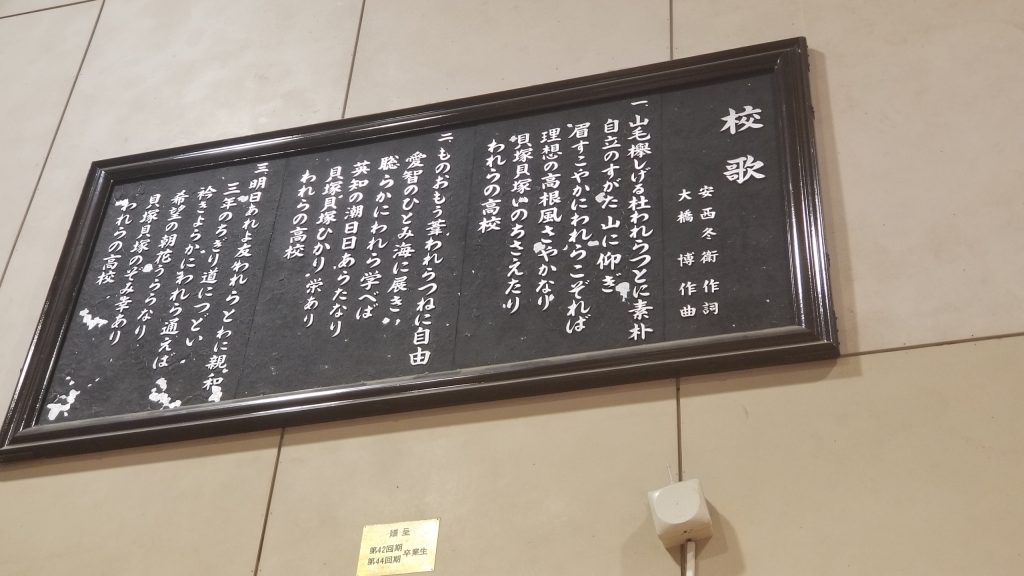 校歌
安西冬衛 作詞
大橋 博 作曲
一 山毛欅しげる杜われらつとに素朴
自立のすがた 山に仰ぎ
眉すこやかにわれらこぞれば
理想の高根風さやかなり
貝塚貝塚いのちさえたり
われらの高校
二 ものおもう葦われらつねに自由
愛智のひとみ海に展き
聡らかにわれら学べば
英知の潮日日あらたなり
貝塚貝塚ひかり栄あり
われらの高校
三 明日あれよ友われらとわに親和
三年のちぎり道につどい
衿きよらかにわれら通えば
希望の朝花うららなり
貝塚貝塚のぞみ幸あり
われらの高校
贈呈
第42回期
第44回期
卒業生